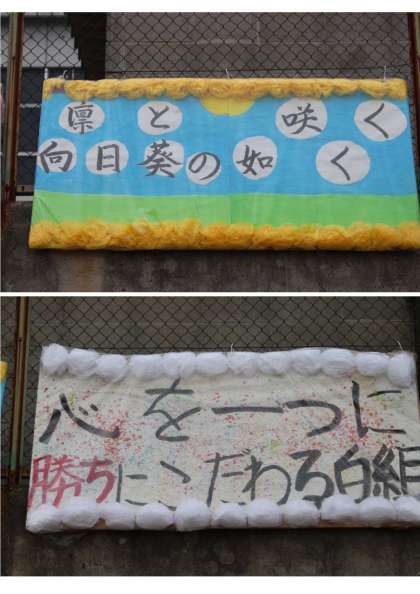 凛と咲く
向日葵の如く
心を一つに
勝ちにこだわる白組